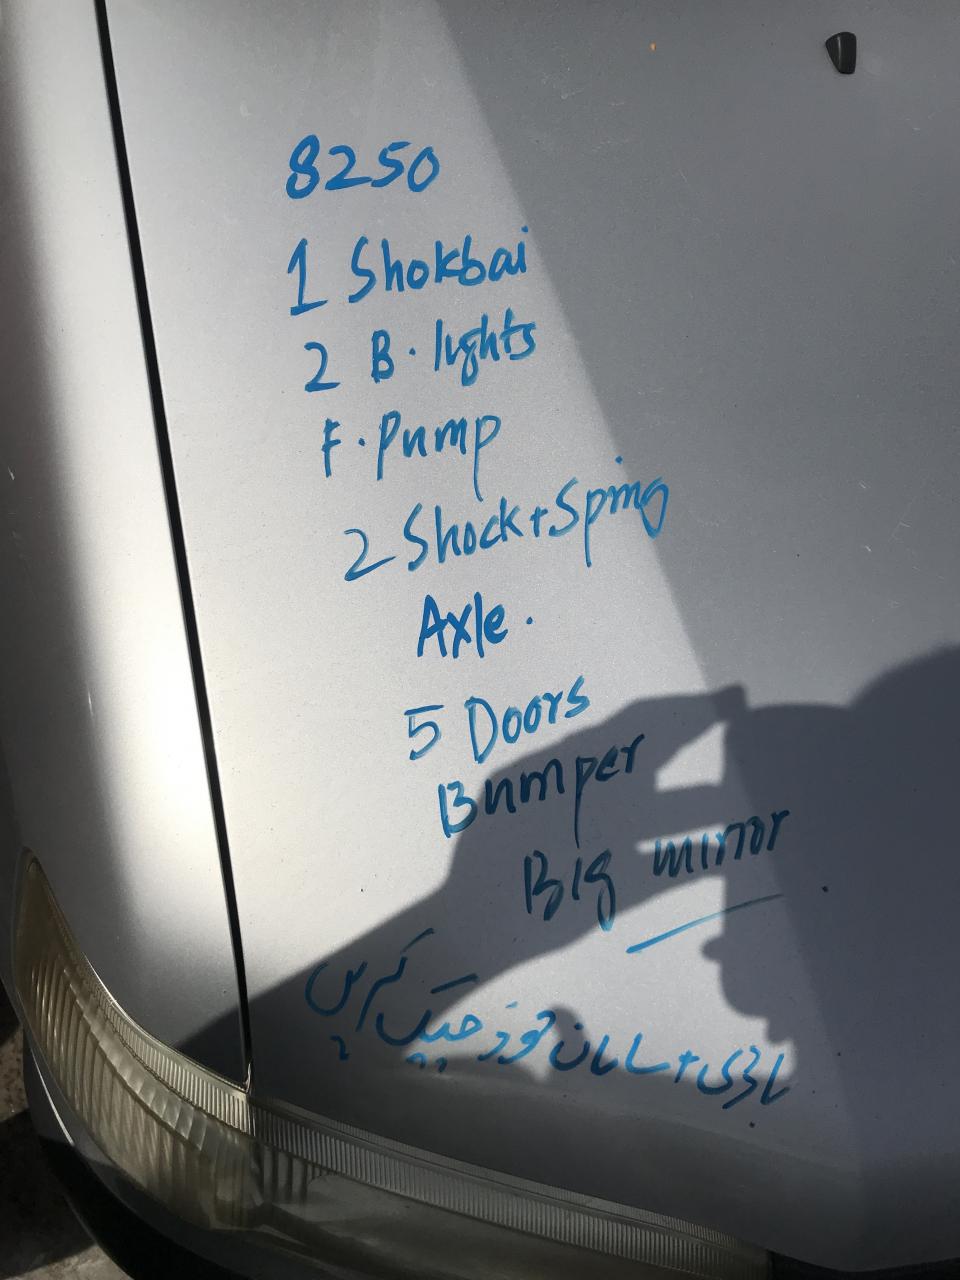 8250
1 Shokbai
2 B. lights
F. Pump
2 Shock+Spring
Axle.
5 Doors
Bumper
Big mirror
باڈی + سامان خود چیک کریں